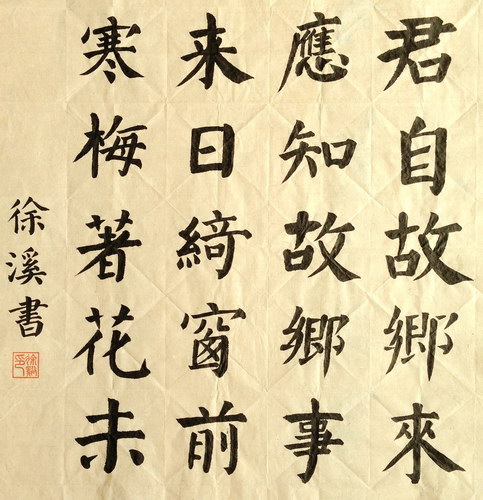 君自故鄉來
應知故鄉事
来日綺窗前
寒梅著花未
徐溪書